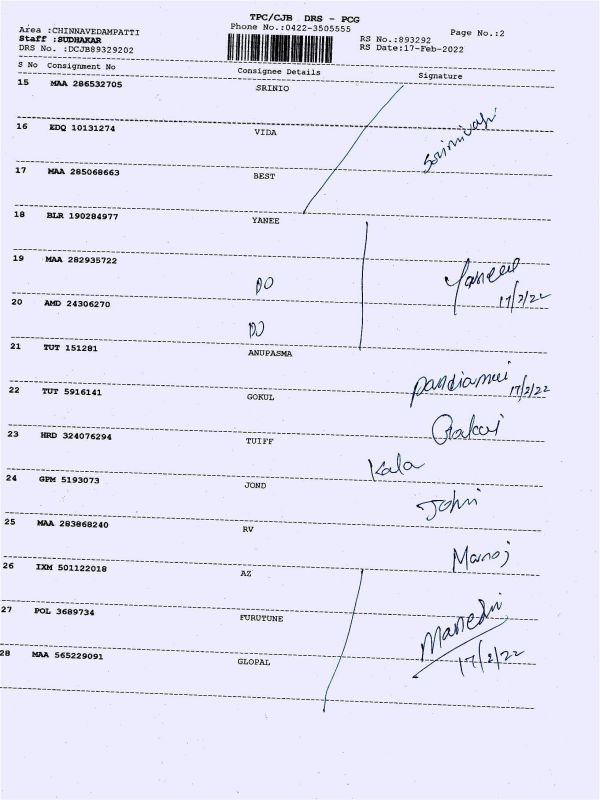 TPC/CJB DRS - PCG
Phone No.:0422-3505555
Page No.:2
Area :CHINNAVEDAMPATTI
Staff :SUDHAKAR
DRS No. :DCJB89329202
RS No.:893292
RS Date:17-Feb-2022
S No Consignment No Consignee Details Signature
15 MAA 286532705 SRINIO
16 EDQ 10131274 VIDA
17 MAA 285068663 BEST
18 BLR 190284977 YANEE
19 MAA 282935722 DO
17/2/22
20 AMD 24306270 DO
21 TUT 151281 ANUPASMA
17/2/22
22 TUT 5916141 GOKUL
23 HRD 324076294 TUIFF
Kala
24 GPM 5193073 JOND
John
25 MAA 283868240 RV
Manoj
26 IXM 501122018 AZ
27 POL 3689734 FURUTUNE
28 MAA 565229091 GLOPAL
17/2/22